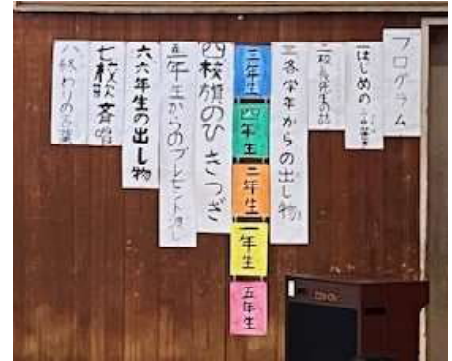 プログラム
一はじめの言葉
二校長先生の話
三各学年からの出し物
三年生
四年生
二年生
一年生
五年生
四校旗のひきつぎ
五五年生からのプレゼント渡し
六六年生の出し物
七校歌斉唱
八終わりの言葉